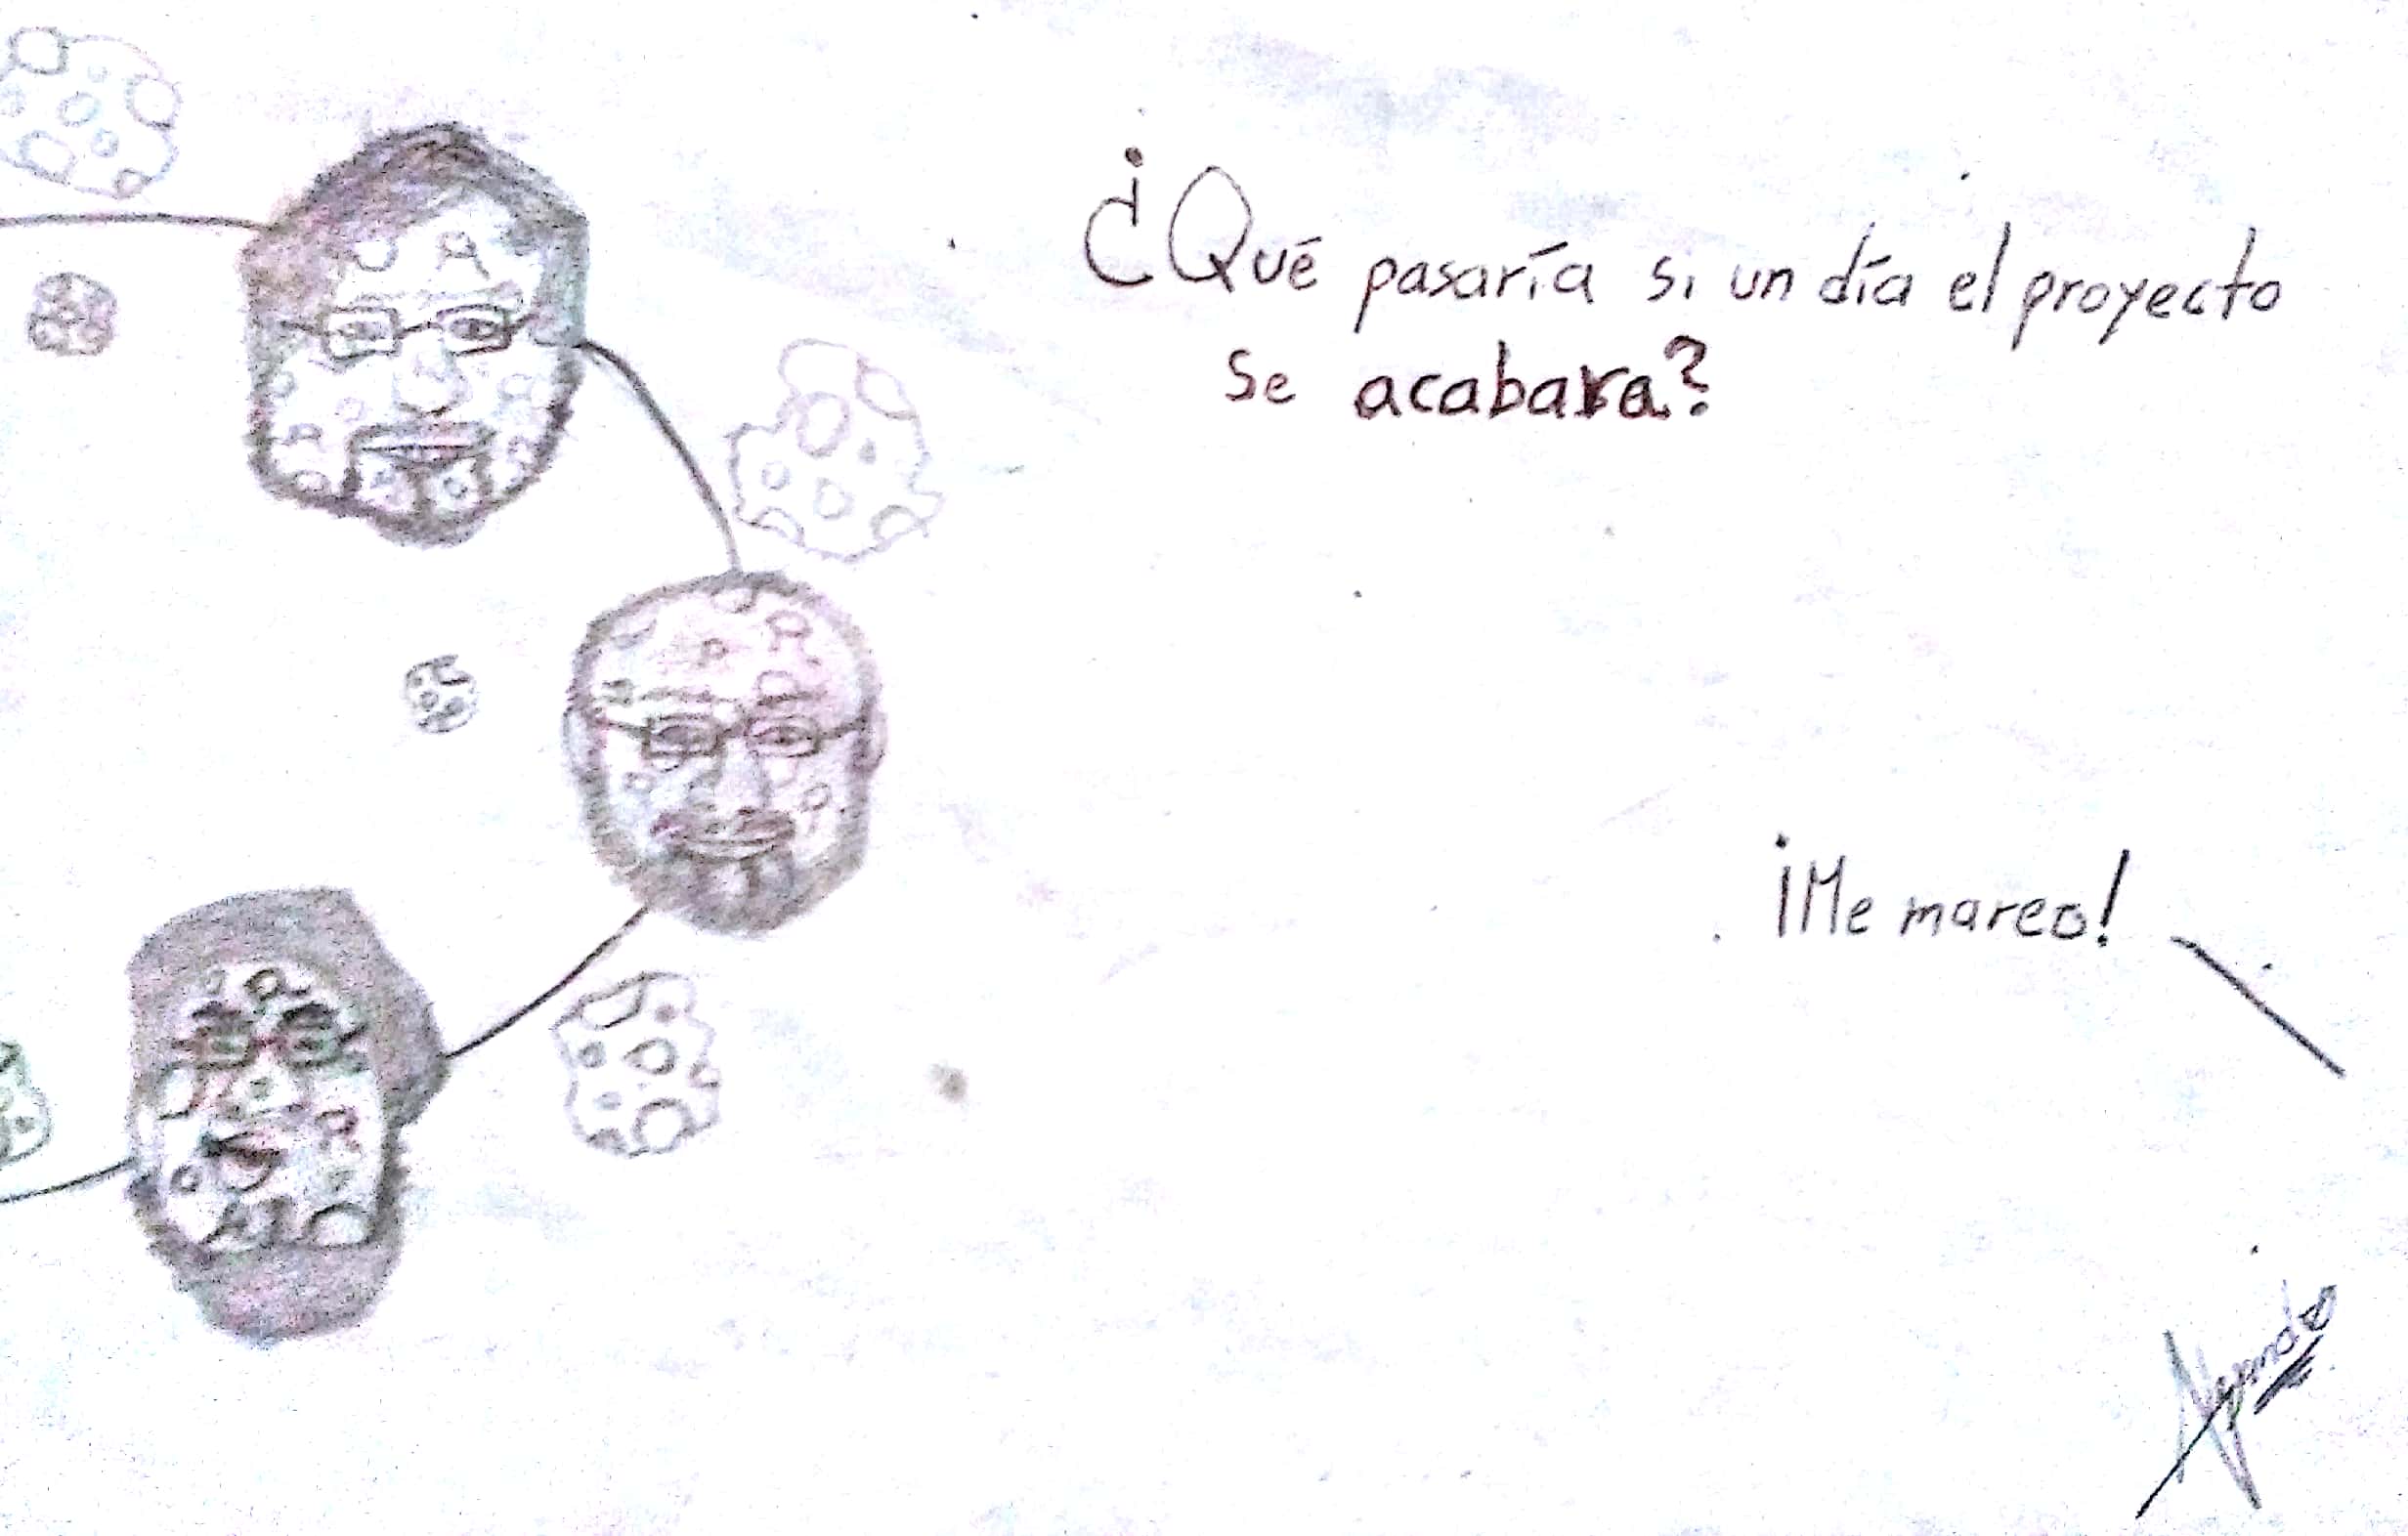 ¿Qué pasaría si un día el proyecto
se acabara?
¡Me mareo!